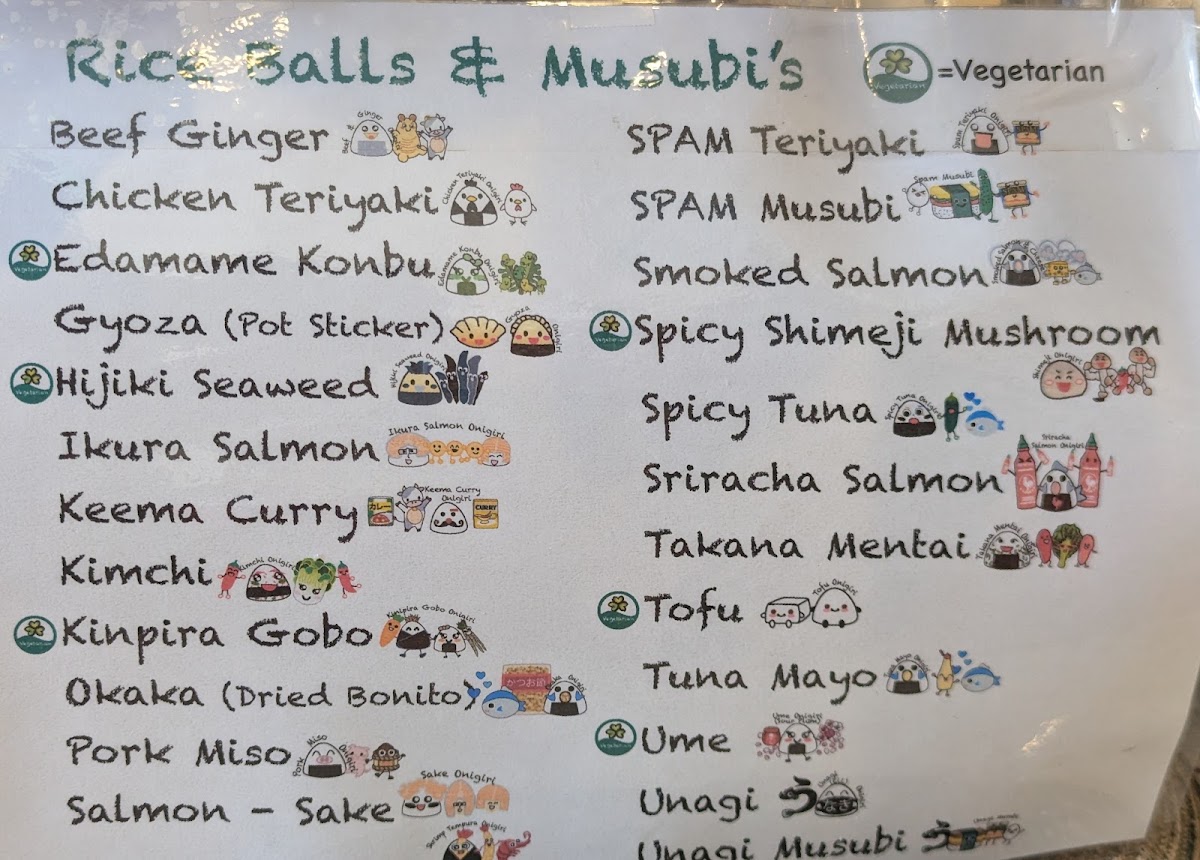 Rice Balls & Musubi's
Vegetarian
=Vegetarian
Beef Ginger
Chicken Teriyaki
Chicken Teriyaki Onigiri
Vegetarian
Edamame Konbu
Edamame Konbu Onigiri
Gyoza (Pot Sticker)
Gyoza Onigiri
Vegetarian
Hijiki Seaweed
Hijiki Seaweed Onigiri
Ikura Salmon
Ikura Salmon Onigiri
Keema Curry
カレー
Keema Curry Onigiri
CURRY
Kimchi
Kimchi Onigiri
Vegetarian
Kinpira Gobo
Kinpira Gobo Onigiri
Okaka (Dried Bonito)
かつお節
Pork Miso
Pork Miso Onigiri
Salmon - Sake
Sake Onigiri
Shrimp Tempura Onigiri
SPAM Teriyaki
Spam Teriyaki Onigiri
SPAM Musubi
Spam Musubi
Smoked Salmon
Vegetarian
Spicy Shimeji Mushroom
Shimeji Onigiri
Spicy Tuna
Spicy Tuna Onigiri
Sriracha Salmon
Sriracha Salmon Onigiri
Takana Mentai
Takana Mentai Onigiri
Vegetarian
Tofu
Tofu Onigiri
Tuna Mayo
Vegetarian
Ume
Ume Onigiri
Unagi
う
Unagi Musubi
う